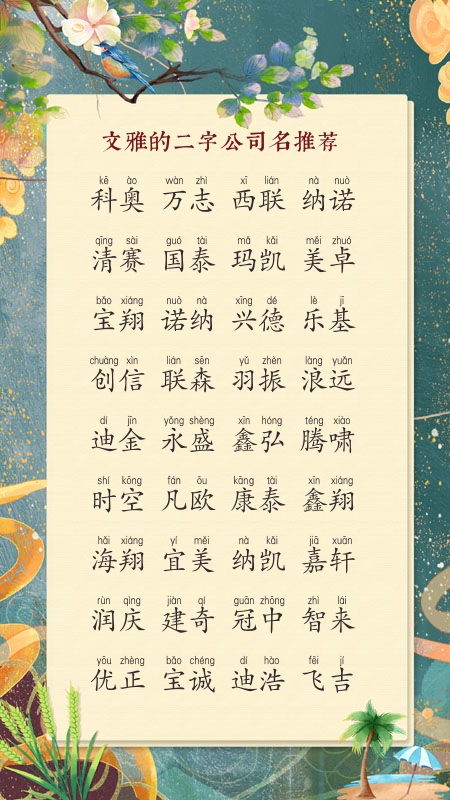 文雅的二字公司名推荐
kē ào wàn zhì xī lián nà nuò
科奥 万志 西联 纳诺
qīng sài guó tài mǎ kǎi měi zhuó
清赛 国泰 玛凯 美卓
bǎo xiáng nuò nà xīng dé lè jī
宝翔 诺纳 兴德 乐基
chuàng xìn lián sēn yǔ zhèn làng yuǎn
创信 联森 羽振 浪远
dí jīn yǒng shèng xīn hóng téng xiào
迪金 永盛 鑫弘 腾啸
shí kōng fán ōu kāng tài xīn xiáng
时空 凡欧 康泰 鑫翔
hǎi xiáng yí měi nà kǎi jiā xuān
海翔 宜美 纳凯 嘉轩
rùn qìng jiàn qí guān zhōng zhì lái
润庆 建奇 冠中 智来
yōu zhèng bǎo chéng dí hào fēi jí
优正 宝诚 迪浩 飞吉